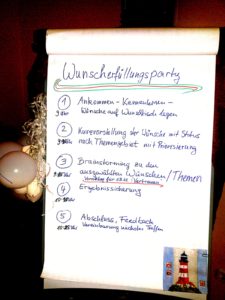 Wunscherfüllungsparty
1 Ankommen - Kennenlernen -
Wünsche auf Wunschtisch legen
2 Kurzvorstellung der Wünsche mit Status
nach Themengebiet mit Priorisierung
3 Brainstorming zu den
ausgewählten Wünschen / Themen
4 Ergebnissicherung
5 Abschluss, Feedback
Vereinbarung nächstes Treffen